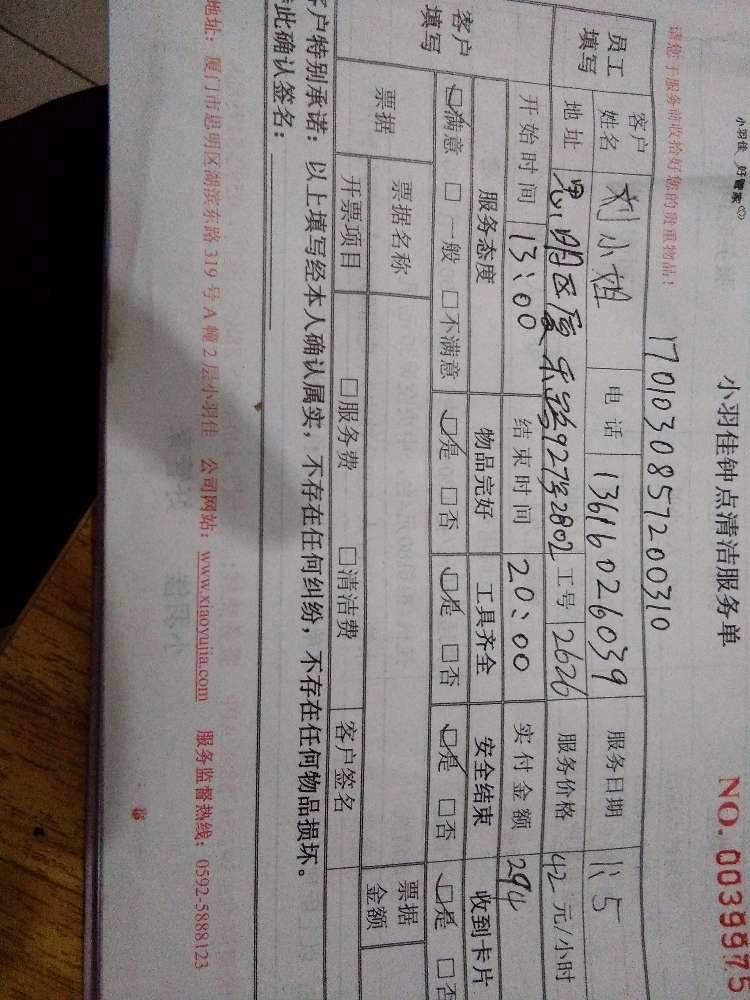 小羽佳 好管家
小羽佳钟点清洁服务单
NO.0039975
1701030857200310
请您于服务前收拾好您的贵重物品！
员工填写 客户姓名 刘小姐 电话 13616026039 服务日期 1.5
地址 思明区厦禾路927号2802 工号 2626 服务价格 42 元/小时
开始时间 13:00 结束时间 20:00 实付金额 294
客户填写 服务态度 物品完好 工具齐全 安全结束 收到卡片
满意 □一般 □不满意 是 □否 是 □否 是 □否 是 □否
票据 票据名称 票据金额
开票项目 □服务费 □清洁费 客户签名
客户特别承诺：以上填写经本人确认属实，不存在任何纠纷，不存在任何物品损坏。
此确认签名：
地址：厦门市思明区湖滨东路319号A幢2层小羽佳 公司网站：www.xiaoyujia.com 服务监督热线：0592-5888123